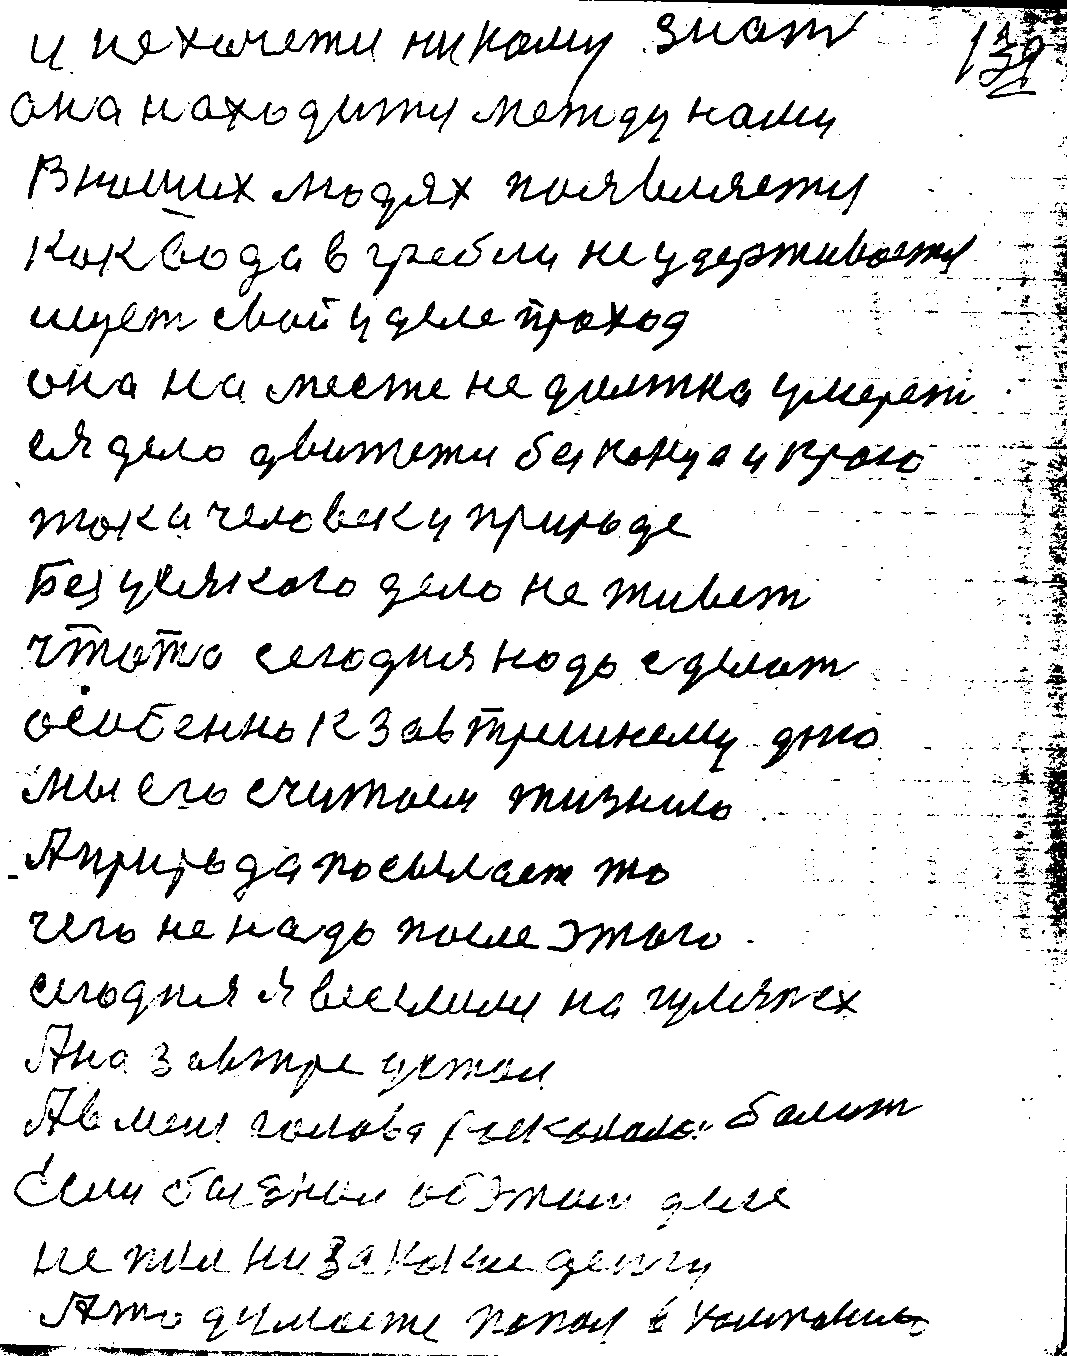 и не хочети никому знат 139
она находити между нами
В наших людях появляети
как вода в гребли не удерживаети
ищет свой у деле проход
она на месте не должна умерет
ея дело движети без конца и краю
тока человек у природе
Без усякого дело не живет
что то сегодня надо сделат
особенно к завтрешнему дню
мы его считаем жизнию
А природа посылает то
чего не надо после этого
сегодня я веселили на гулянех
А на завтре устал
А в меня голова болит
Если бы я знал об этом деле
не пил ни за какие денги
А то думаете попал в